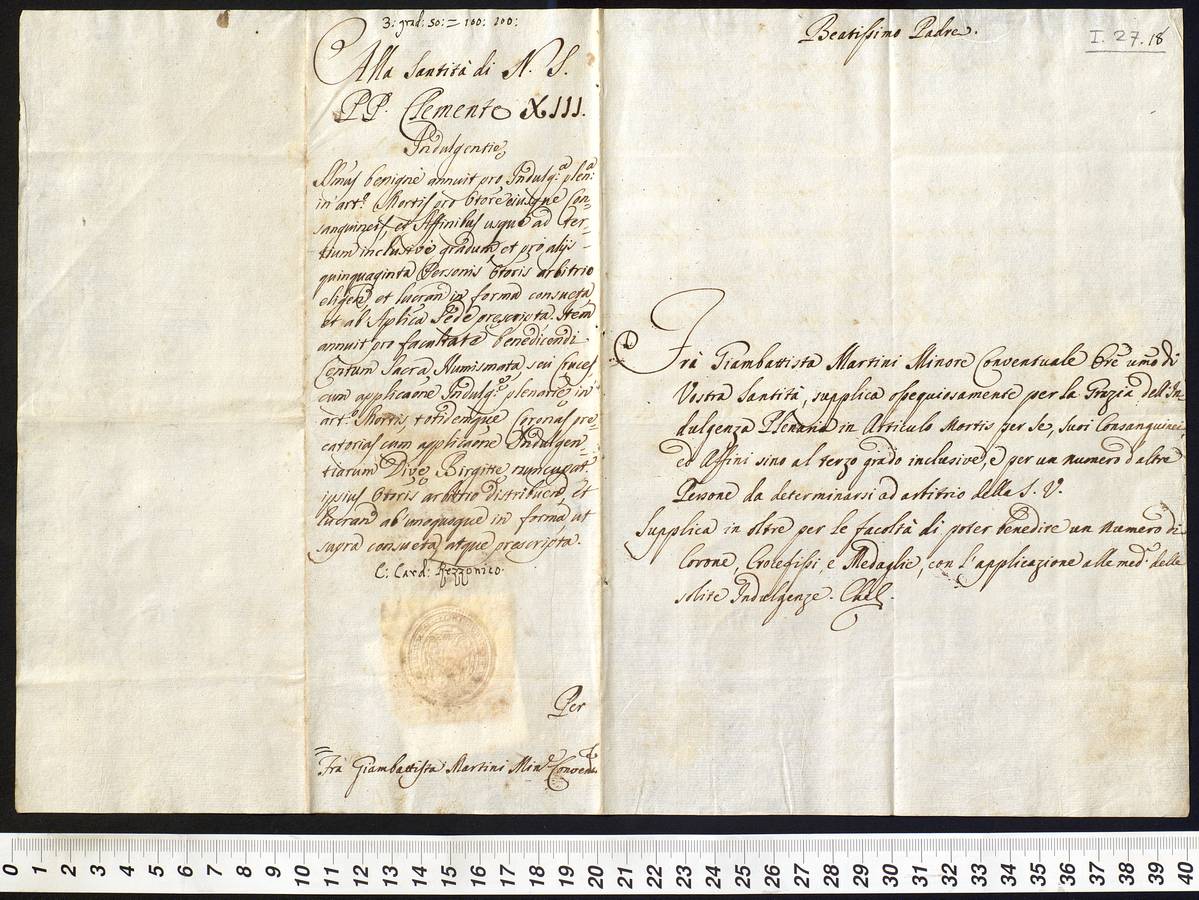 3: grad: 50: = 100: 100:
Alla Santità di N. S.
PP. Clemente XIII.
Indulgentie
SSmus benignè annuit pro Indulg.ᵃ plen.ᵃ
in art.º Mortis pro Orore eiusque Con-
sanguineis, et Affinibus usque ad ter-
tium inclusivè gradum, et pro alijs
quinquaginta Personis Ororis arbitrio
eligen, et lucran in formâ consueta,
et ab Aplica Sede prescripta. Item
annuit pro facultate benedicendi
Centum Sacra Numismata, seu Cruces
cum applicaone Indulg.ᵉ plenarie in
art.º Mortis, totidemque Coronas pre-
catorias cum applicaone Indulgen-
tiarum Dive Birgitte nuncupat
ipsius Ororis arbitrio distribuend, et
lucran ab unoquoque in formâ ut
supra consueta, atque prescripta.
C: Card: Rezzonico.
Per
Frà Giambattista Martini Min.ᵉ Convent.
Beatissimo Padre.
I. 27. 18
Frà Giambattista Martini Minore Conventuale Ore umo di
Vostra Santità, supplica ossequiosamente per la Grazia dell'In-
dulgenza Plenaria in Articulo Mortis per se, suoi Consanguinei,
ed Affini sino al terzo grado inclusive, e per un numero d'altre
Persone da determinarsi ad arbitrio della S. V.
Supplica in oltre per le facoltà di poter benedire un numero di
Corone, Crocefissi, e Medaglie, con l'applicazione alle med.ᵉ delle
solite Indulgenze. Che